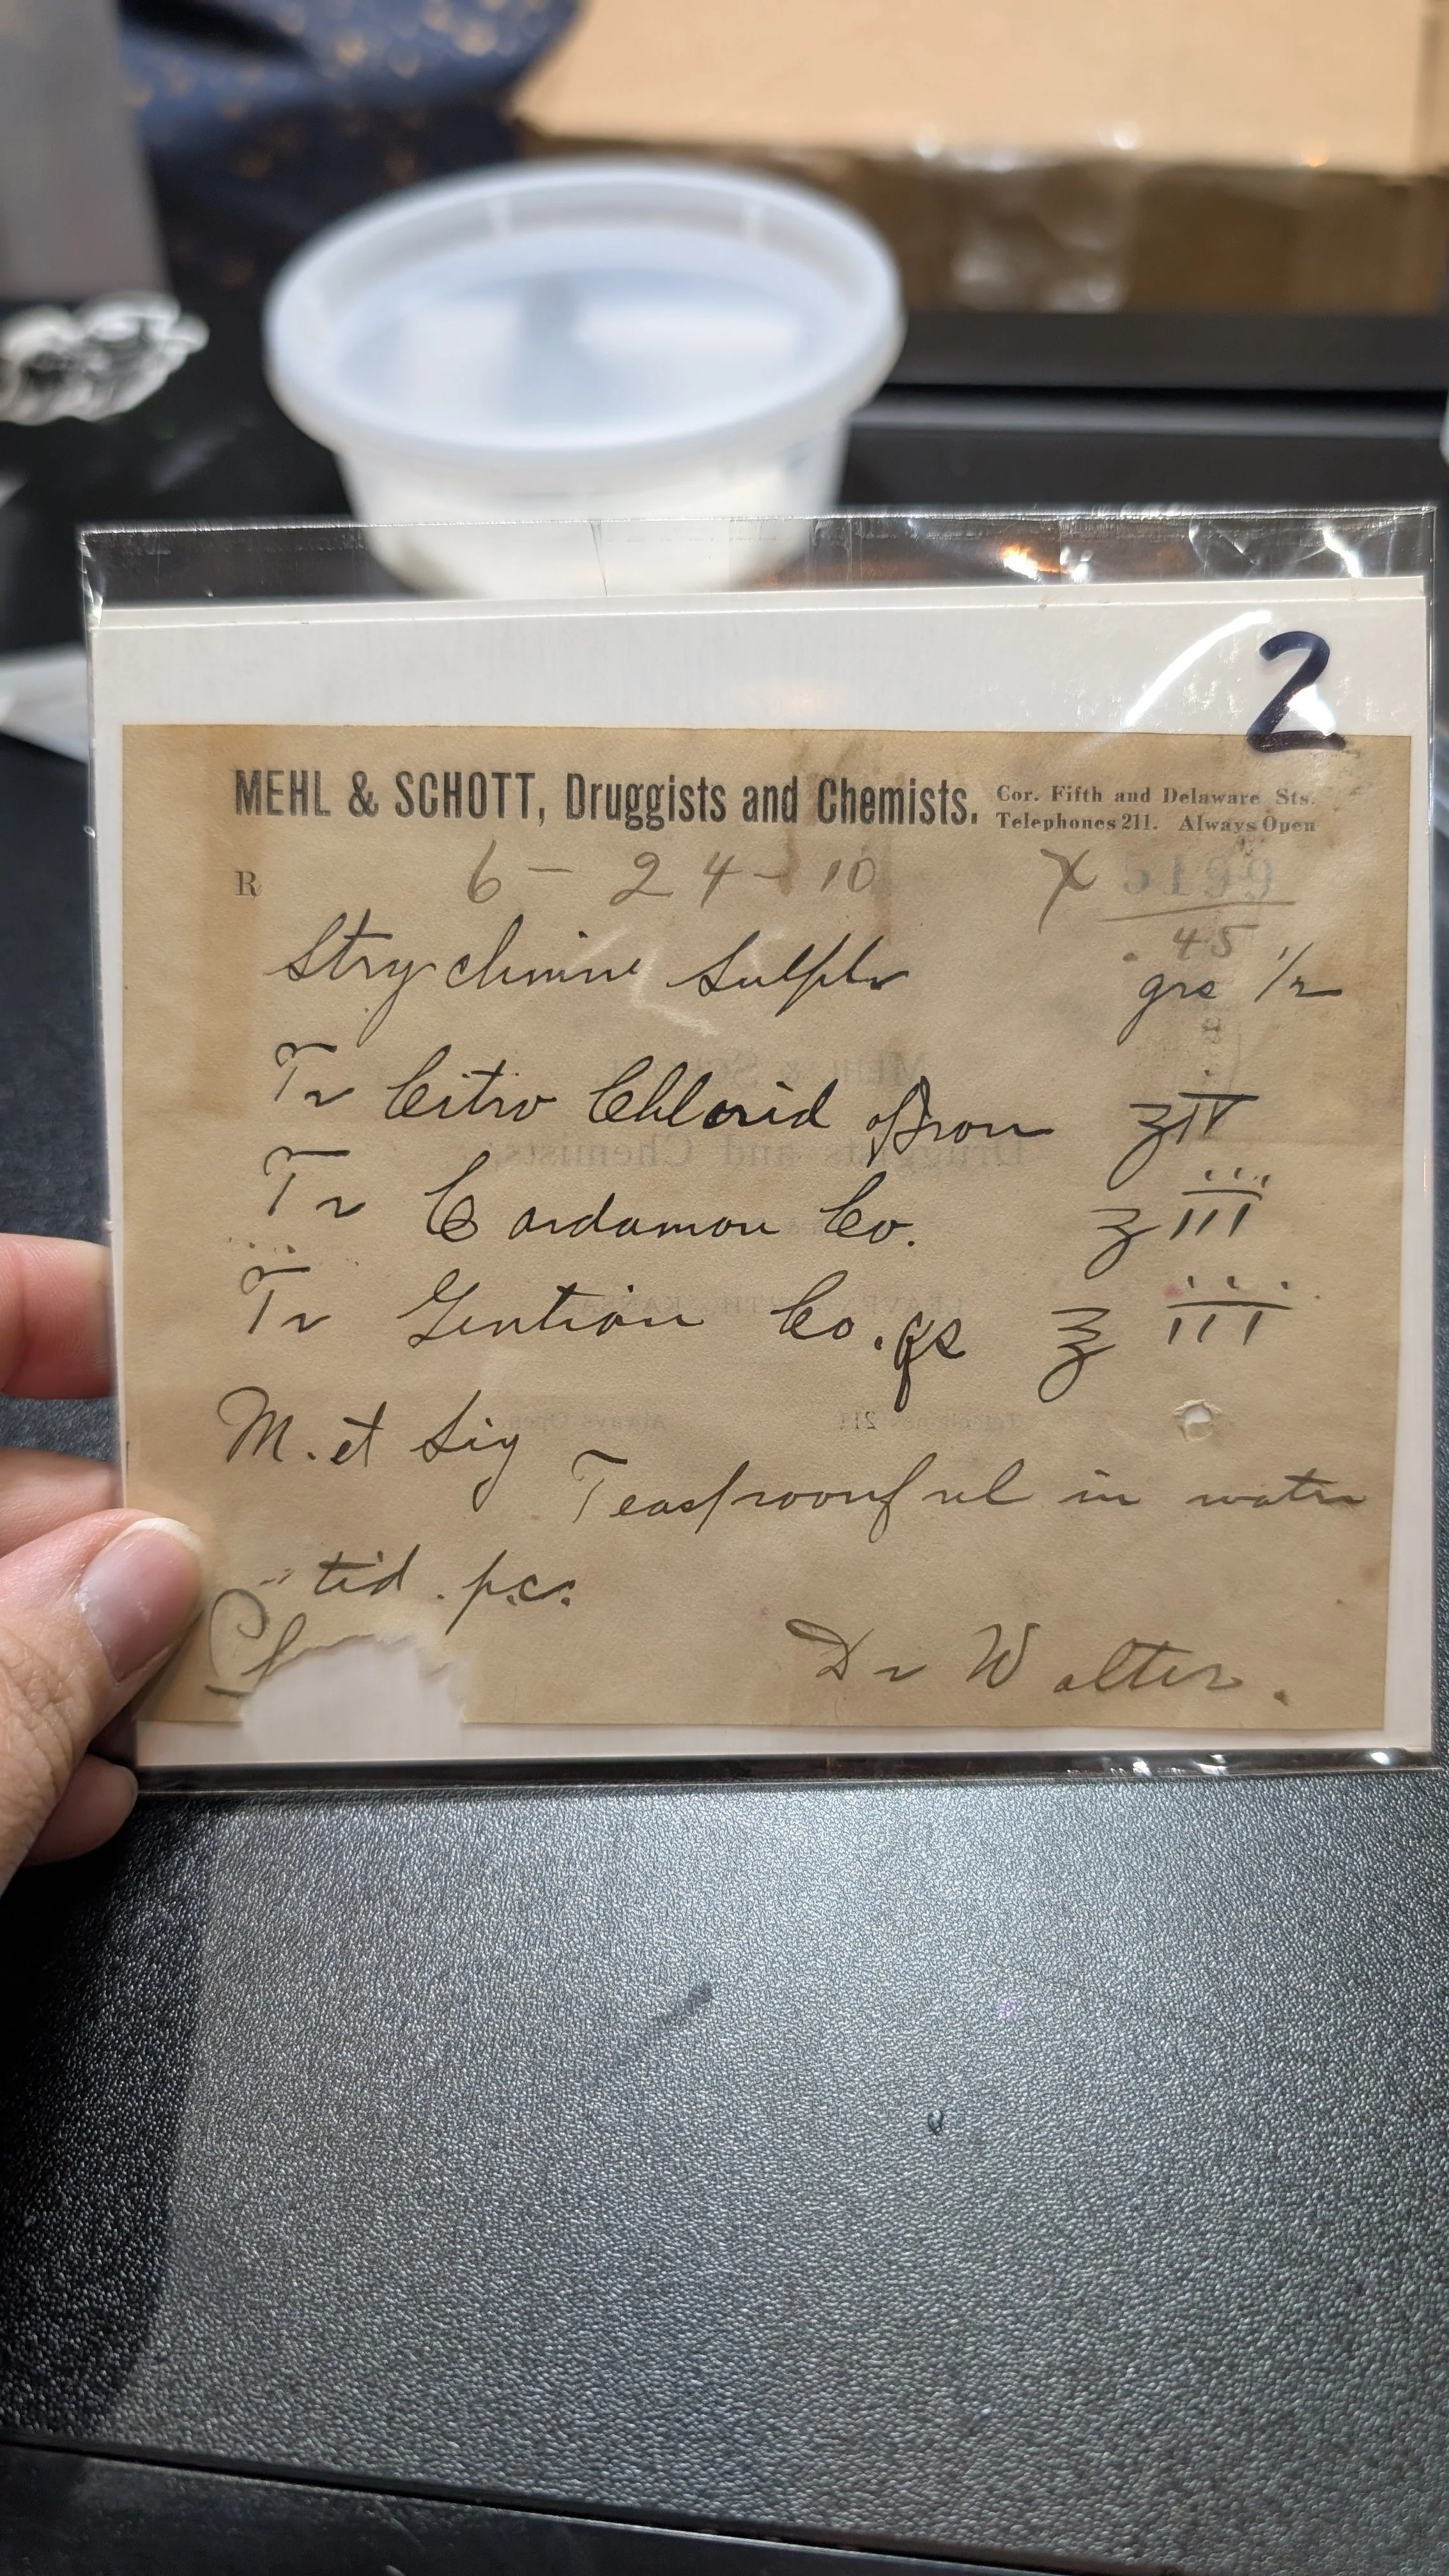 2
MEHL & SCHOTT, Druggists and Chemists. Cor. Fifth and Delaware Sts.
Telephones 211. Always Open
R 6 - 24 - 10 X 5199
.45
Strychnine Sulph grs 1/2
Tr Citro Chlorid Iron ʒIV
Tr Cardamon Co. ʒ iii
Tr Gentian Co. qs ℥ iii
M. et Sig
Teaspoonful in water
tid. p.c.
Dr Walter.